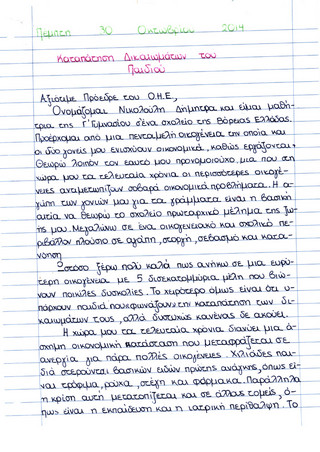 Πέμπτη 30 Οκτωβρίου 2014
Καταπάτηση Δικαιωμάτων του
Παιδιού
Αξιότιμε Πρόεδρε του Ο.Η.Ε.,
Ονομάζομαι Νικολούλη Δήμητρα και είμαι μαθή-
τρια της Γ' Γυμνασίου σ'ένα σχολείο της Βόρειας Ελλάδας.
Προέρχομαι από μια πενταμελή οικογένεια την οποία και
οι δυο γονείς μου ενισχύουν οικονομικά, καθώς εργάζονται.
Θεωρώ λοιπόν τον εαυτό μου προνομοιούχο, μια που στη
χώρα μου τα τελευταία χρόνια οι περισσότερες οικογέ-
νειες αναμετωπίζουν σοβαρά οικονομικά προβλήματα. Η α-
γάπη των γονιών μου για τα γράμματα είναι η βασική
αιτία να θεωρώ το σχολείο πρωταρχικό μέλημα της ζω-
ής μου. Μεγαλώνω σε ένα οικογενειακό και σχολικό πε-
ριβάλλον πλούσιο σε αγάπη, στοργή, σεβασμό και κατα-
νόηση.
Ωστόσο ξέρω πολύ καλά πως ανήκω σε μια ευρύ-
τερη οικογένεια με 5 δισεκατομμύρια μέλη που βιώ-
νουν ποικίλες δυσκολίες. Το χειρότερο όμως είναι ότι υ-
πάρχουν παιδιά που«φωνάζουν» την καταπάτηση των δι-
καιωμάτων τους, αλλά δυστυχώς κανένας δε ακούει.
Η χώρα μου τα τελευταία χρόνια διανύει μια ά-
σχημη οικονομική κατάσταση που μεταφράζεται σε
ανεργία για πάρα πολλές οικογένειες. Χιλιάδες παι-
διά στερούνται βασικών ειδών πρώτης ανάγκης, όπως εί-
ναι τρόφιμα, ρούχα, στέγη και φάρμακα. Παράλληλα
η κρίση αυτή μετατοπίζεται και σε άλλους τομείς, ό-
πως είναι η εκπαίδευση και η ιατρική περίθαλψη. Το